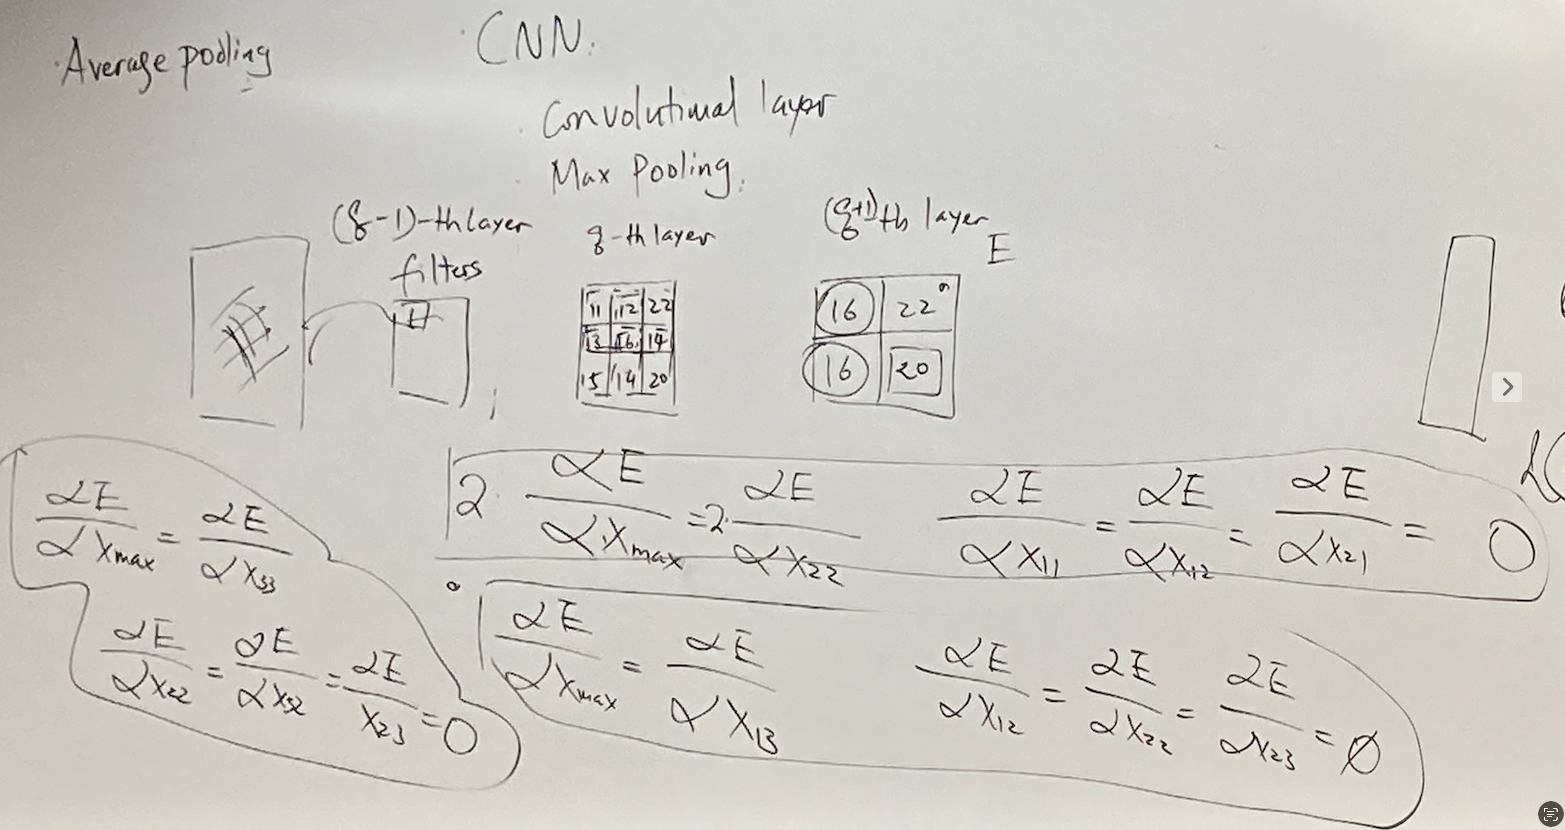 Average pooling
CNN.
Convolutional layer
Max Pooling.
(q-1)-th layer
filters
q-th layer
(q+1)th layer
E
11 12 22
13 16 14
15 14 20
16 22
16 20
2 · ∂E/∂Xmax = 2 · ∂E/∂X22
∂E/∂X11 = ∂E/∂X12 = ∂E/∂X21 = 0
∂E/∂Xmax = ∂E/∂X33
∂E/∂X22 = ∂E/∂X32 = ∂E/X23 = 0
∂E/∂Xmax = ∂E/∂X13
∂E/∂X12 = ∂E/∂X22 = ∂E/∂X23 = 0